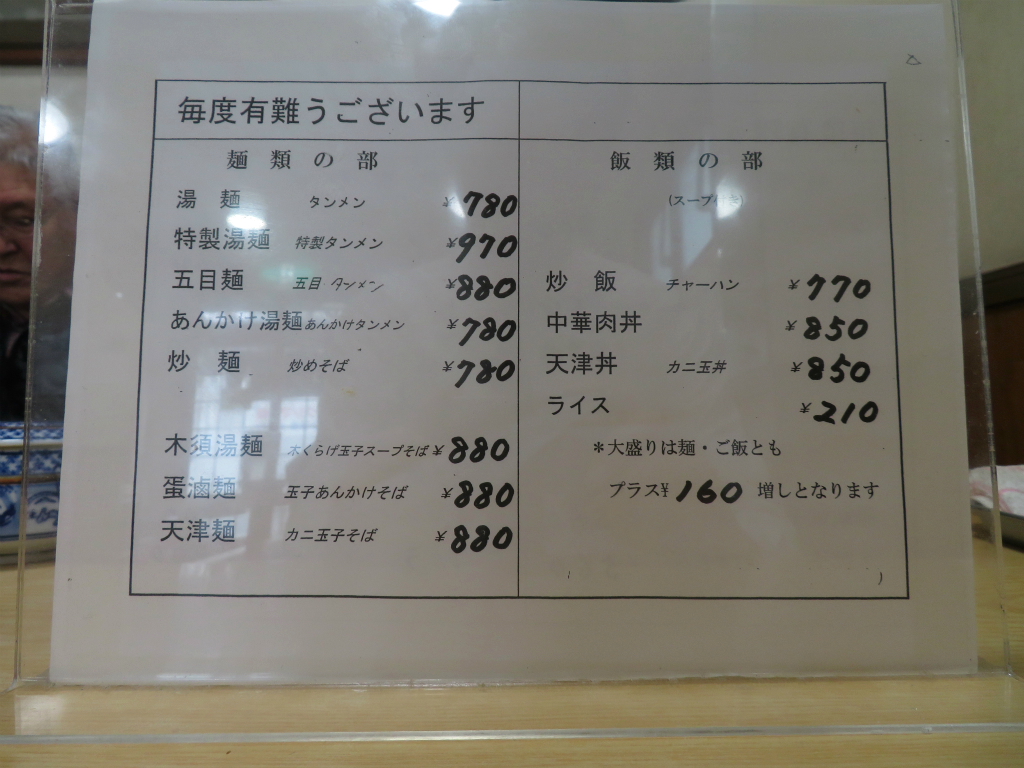 毎度有難うございます
麺類の部
湯麺 タンメン ¥780
特製湯麺 特製タンメン ¥970
五目麺 五目タンメン ¥880
あんかけ湯麺 あんかけタンメン ¥780
炒麺 炒めそば ¥780
木須湯麺 木くらげ玉子スープそば ¥880
蛋滷麺 玉子あんかけそば ¥880
天津麺 カニ玉子そば ¥880
飯類の部
(スープ付き)
炒飯 チャーハン ¥770
中華肉丼 ¥850
天津丼 カニ玉丼 ¥850
ライス ¥210
＊大盛りは麺・ご飯とも
プラス¥160 増しとなります